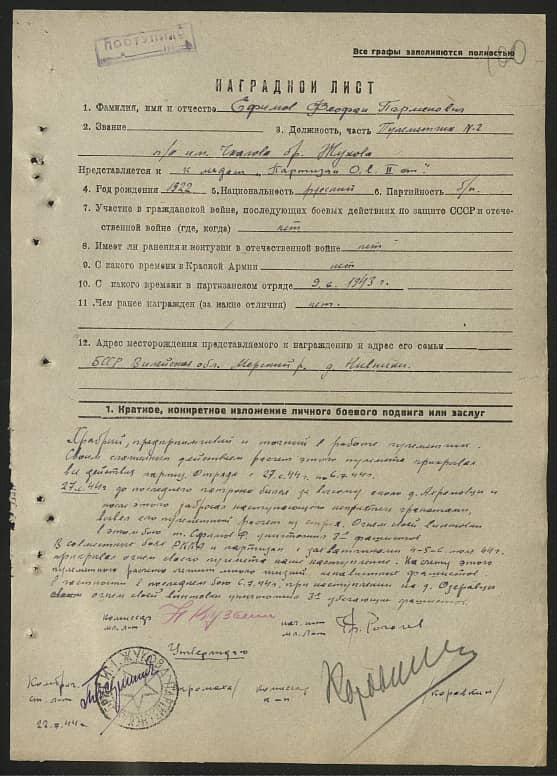 ПОСТУПИЛО
Все графы заполняются полностью
100
НАГРАДНОЙ ЛИСТ
1. Фамилия, имя и отчество Ефимов Феофан Парменович
2. Звание 3. Должность, часть Пулеметчик №2
п/о им. Чкалова бр. Жукова
Представляется к к медали "Партизан О.в. II ст."
4. Год рождения 1922 5. Национальность русский 6. Партийность б/п.
7. Участие в гражданской войне, последующих боевых действиях по защите СССР и отече-
ственной войне (где, когда) нет
8. Имеет ли ранения и контузии в отечественной войне нет
9. С какого времени в Красной Армии нет
10. С какого времени в партизанском отряде 9.6.1943 г.
11. Чем ранее награжден (за какие отличия) нет.
12. Адрес месторождения представляемого к награждению и адрес его семьи
БССР Вилейская обл. р. д.
1. Краткое, конкретное изложение личного боевого подвига или заслуг
Храбрый, предприимчивый и точный в работе пулеметчик.
Своим слаженным действием расчет этого пулемета прикрывал
все действия отряда с 27.6.44г. по 6.7.44г.
27.6.44г. до последнего патрона бился за высоту около д.
после этого забросал наступающего неприятеля гранатами,
вывел его пулеметный расчет из строя. Огнем своей винтовки
в этом бою т. Ефимов Ф. уничтожил 3х фашистов
В совместных боях РККА и партизан с захватчиками 4-5-6 июля 44г.
прикрывал огнем своего пулемета наше наступление. На счету этого
пулеметного расчета много жизней ненавистных фашистов
в частности в последнем бою 6.7.44г. при наступлении на д.
огнем своей винтовки уничтожил 3х убегающих фашистов.
Комиссар
мл. лет. Кузьмин
нач. шт.
мл. лейт. Рогачев
Утверждаю
Комбриг
ст. лт.
комиссар
к-н /Коровкин/
22.7.44г.